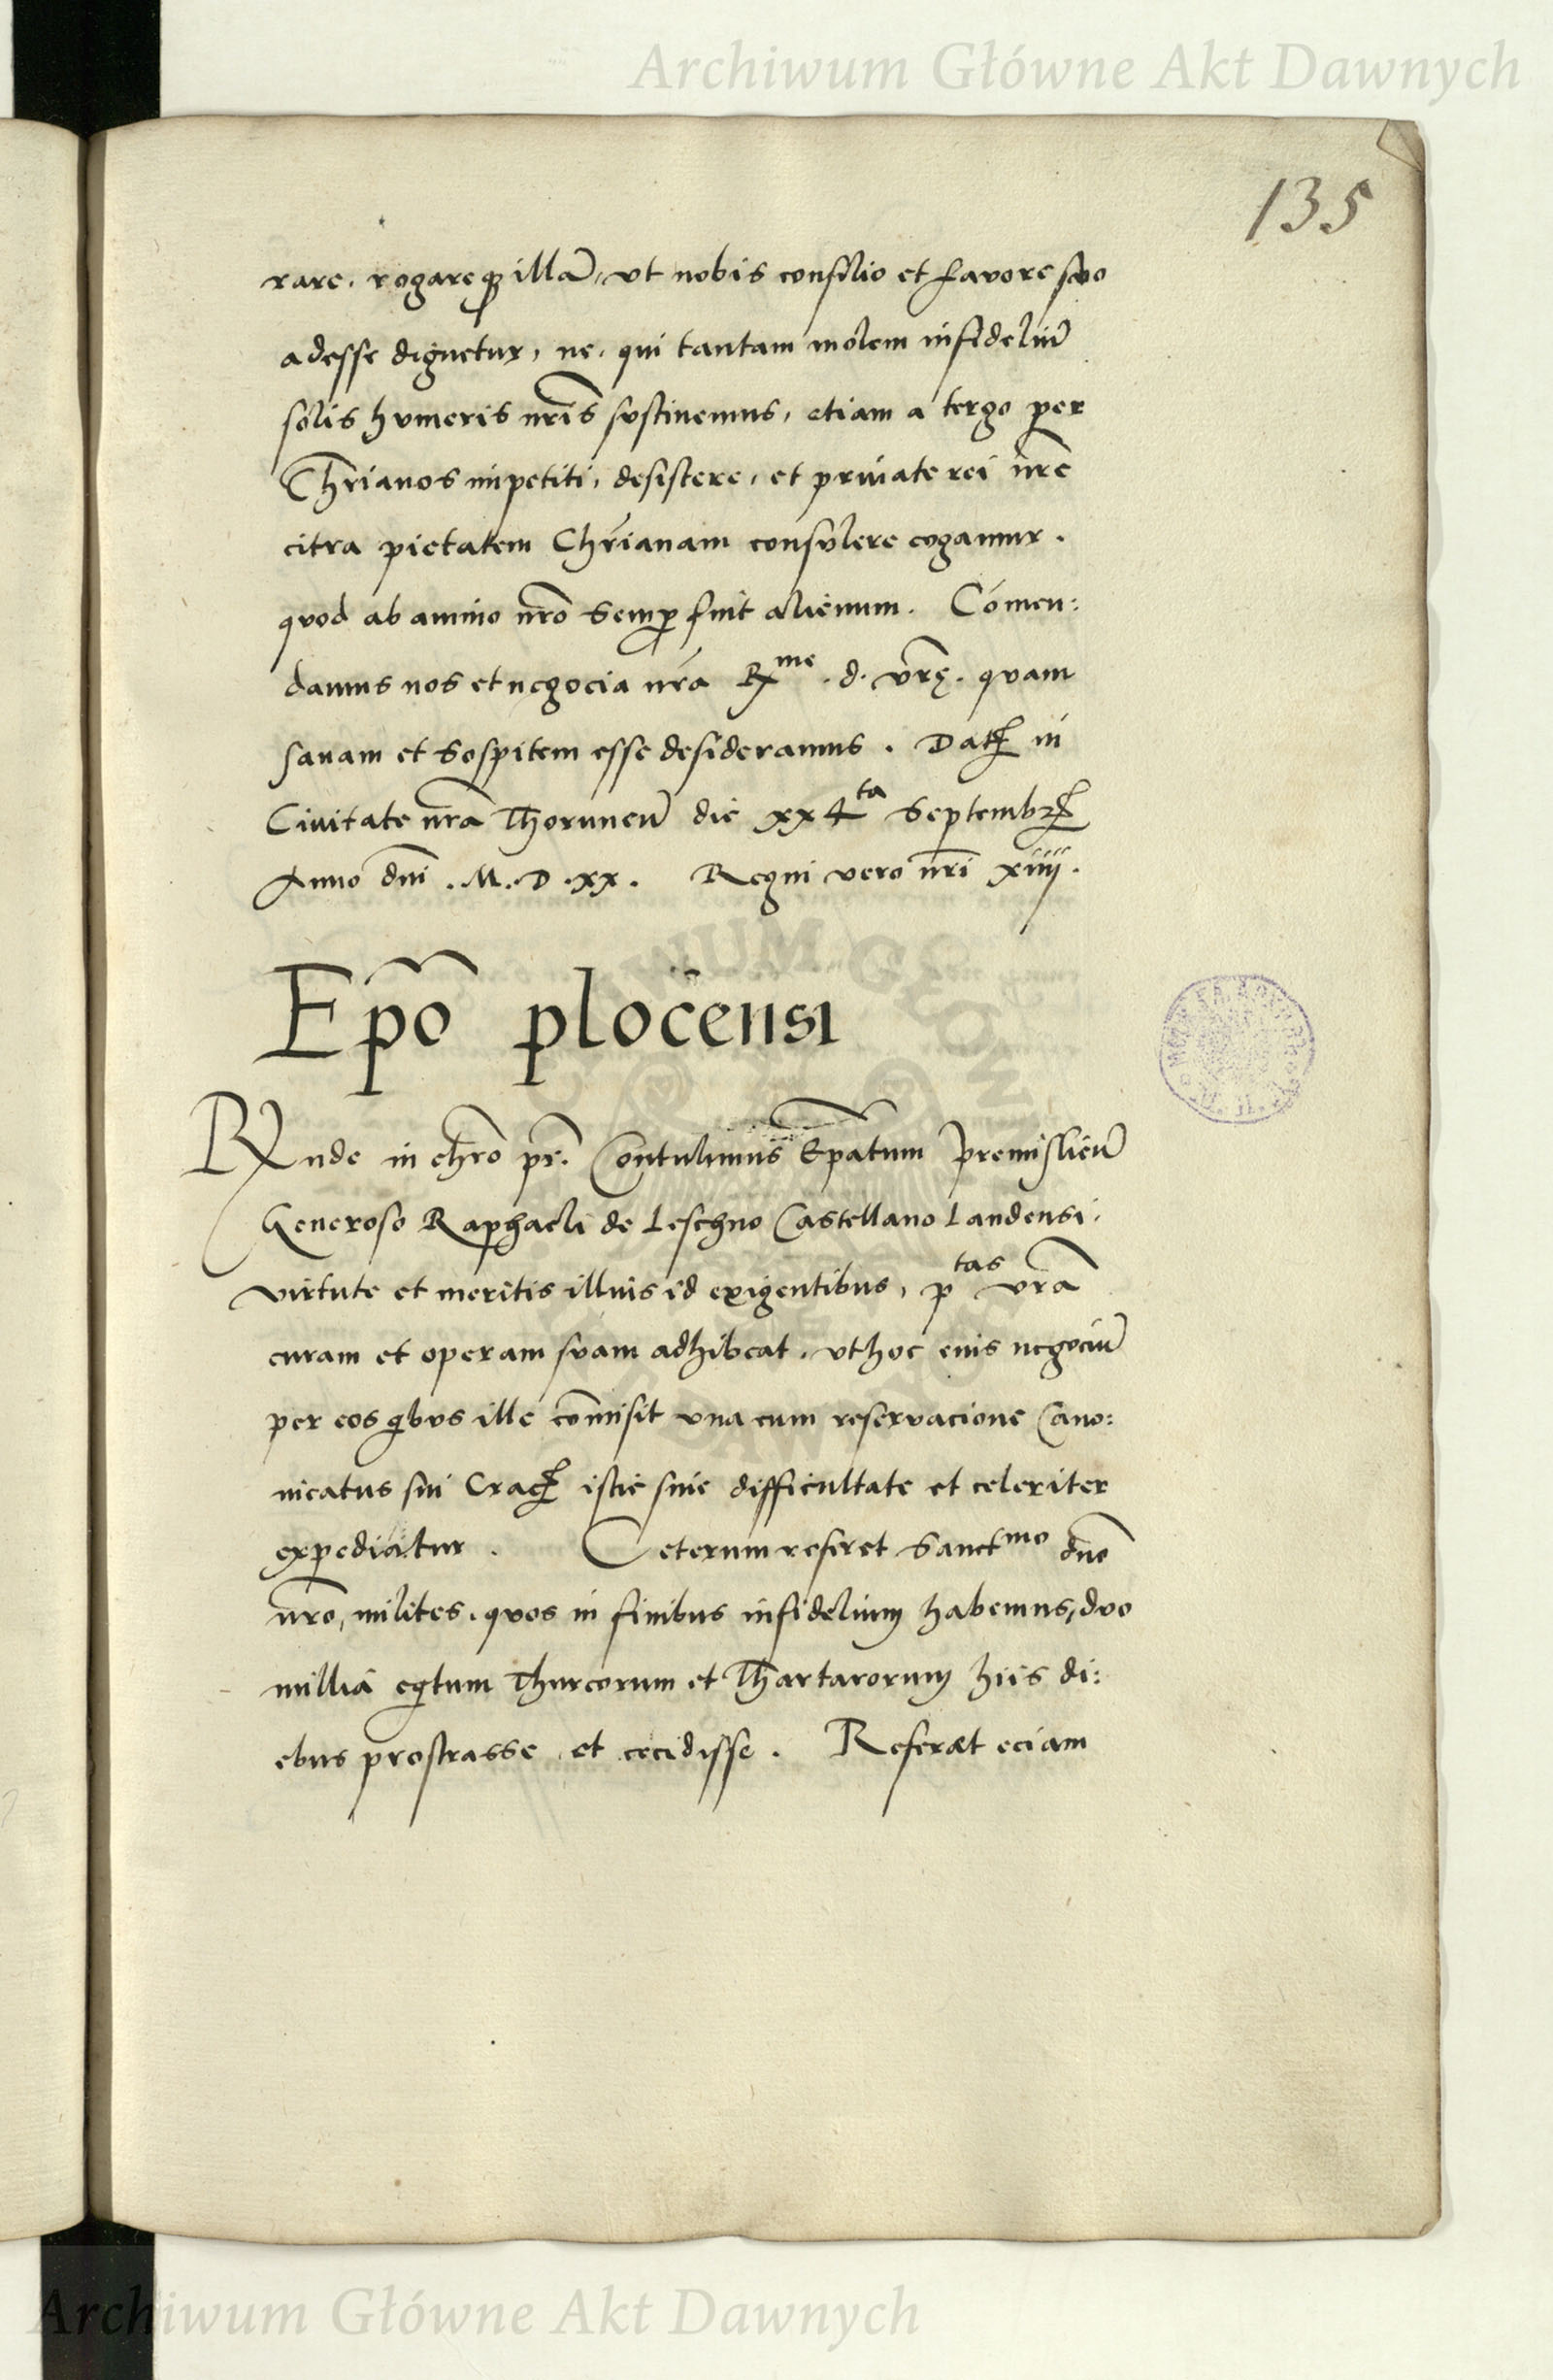 Archiwum Główne Akt Dawnych
135
rare. rogareqꝫ illā, vt nobis consilio et favore suo
adesse dignetur, ne, qui tantam molem infideliū
solis hvmeris nr̄is svstinemus, etiam a tergo per
Chr̄ianos impetiti, desistere, et privaterei nr̄e
citra pietatem Chr̄ianam consvlere cogamur.
qvod ab animo nr̄o semꝑ fuit alienum. Comen:
damus nos et negocia nr̄a Rme . d. vrę̄. qvam
sanam et sospitem esse desideramus. Datꝭ in
Civitate nr̄a Thorunen̄ die xx4ta Septembrꝭ
Anno dn̄i .M.D.xx. Regni vero nr̄i xiiij.
Ep̄o plocensi
Rnde in chr̄o pr̄. Contulimus Ep̄atum Premislien̄
Generoso Raphaeli de Leschno Castellano Landensi.
virtute et meritis illius id exigentibus, ptas vr̄a
curam et operam svam adhibeat. vt hoc eius negociū
per eos qibvs ille com̄isit vna cum reservacione Cano:
nicatus sui Cracꝭ istic sine difficultate et celeriter
expediatur. Ceterum referet Sanctmo dn̄o
nr̄o, milites. qvos in finibus infidelium habemus, dvo
millia eqitum Thurcorum et Thartarorum hiis di:
ebus prostrasse et cecidisse. Referat eciam
Archiwum Główne Akt Dawnych